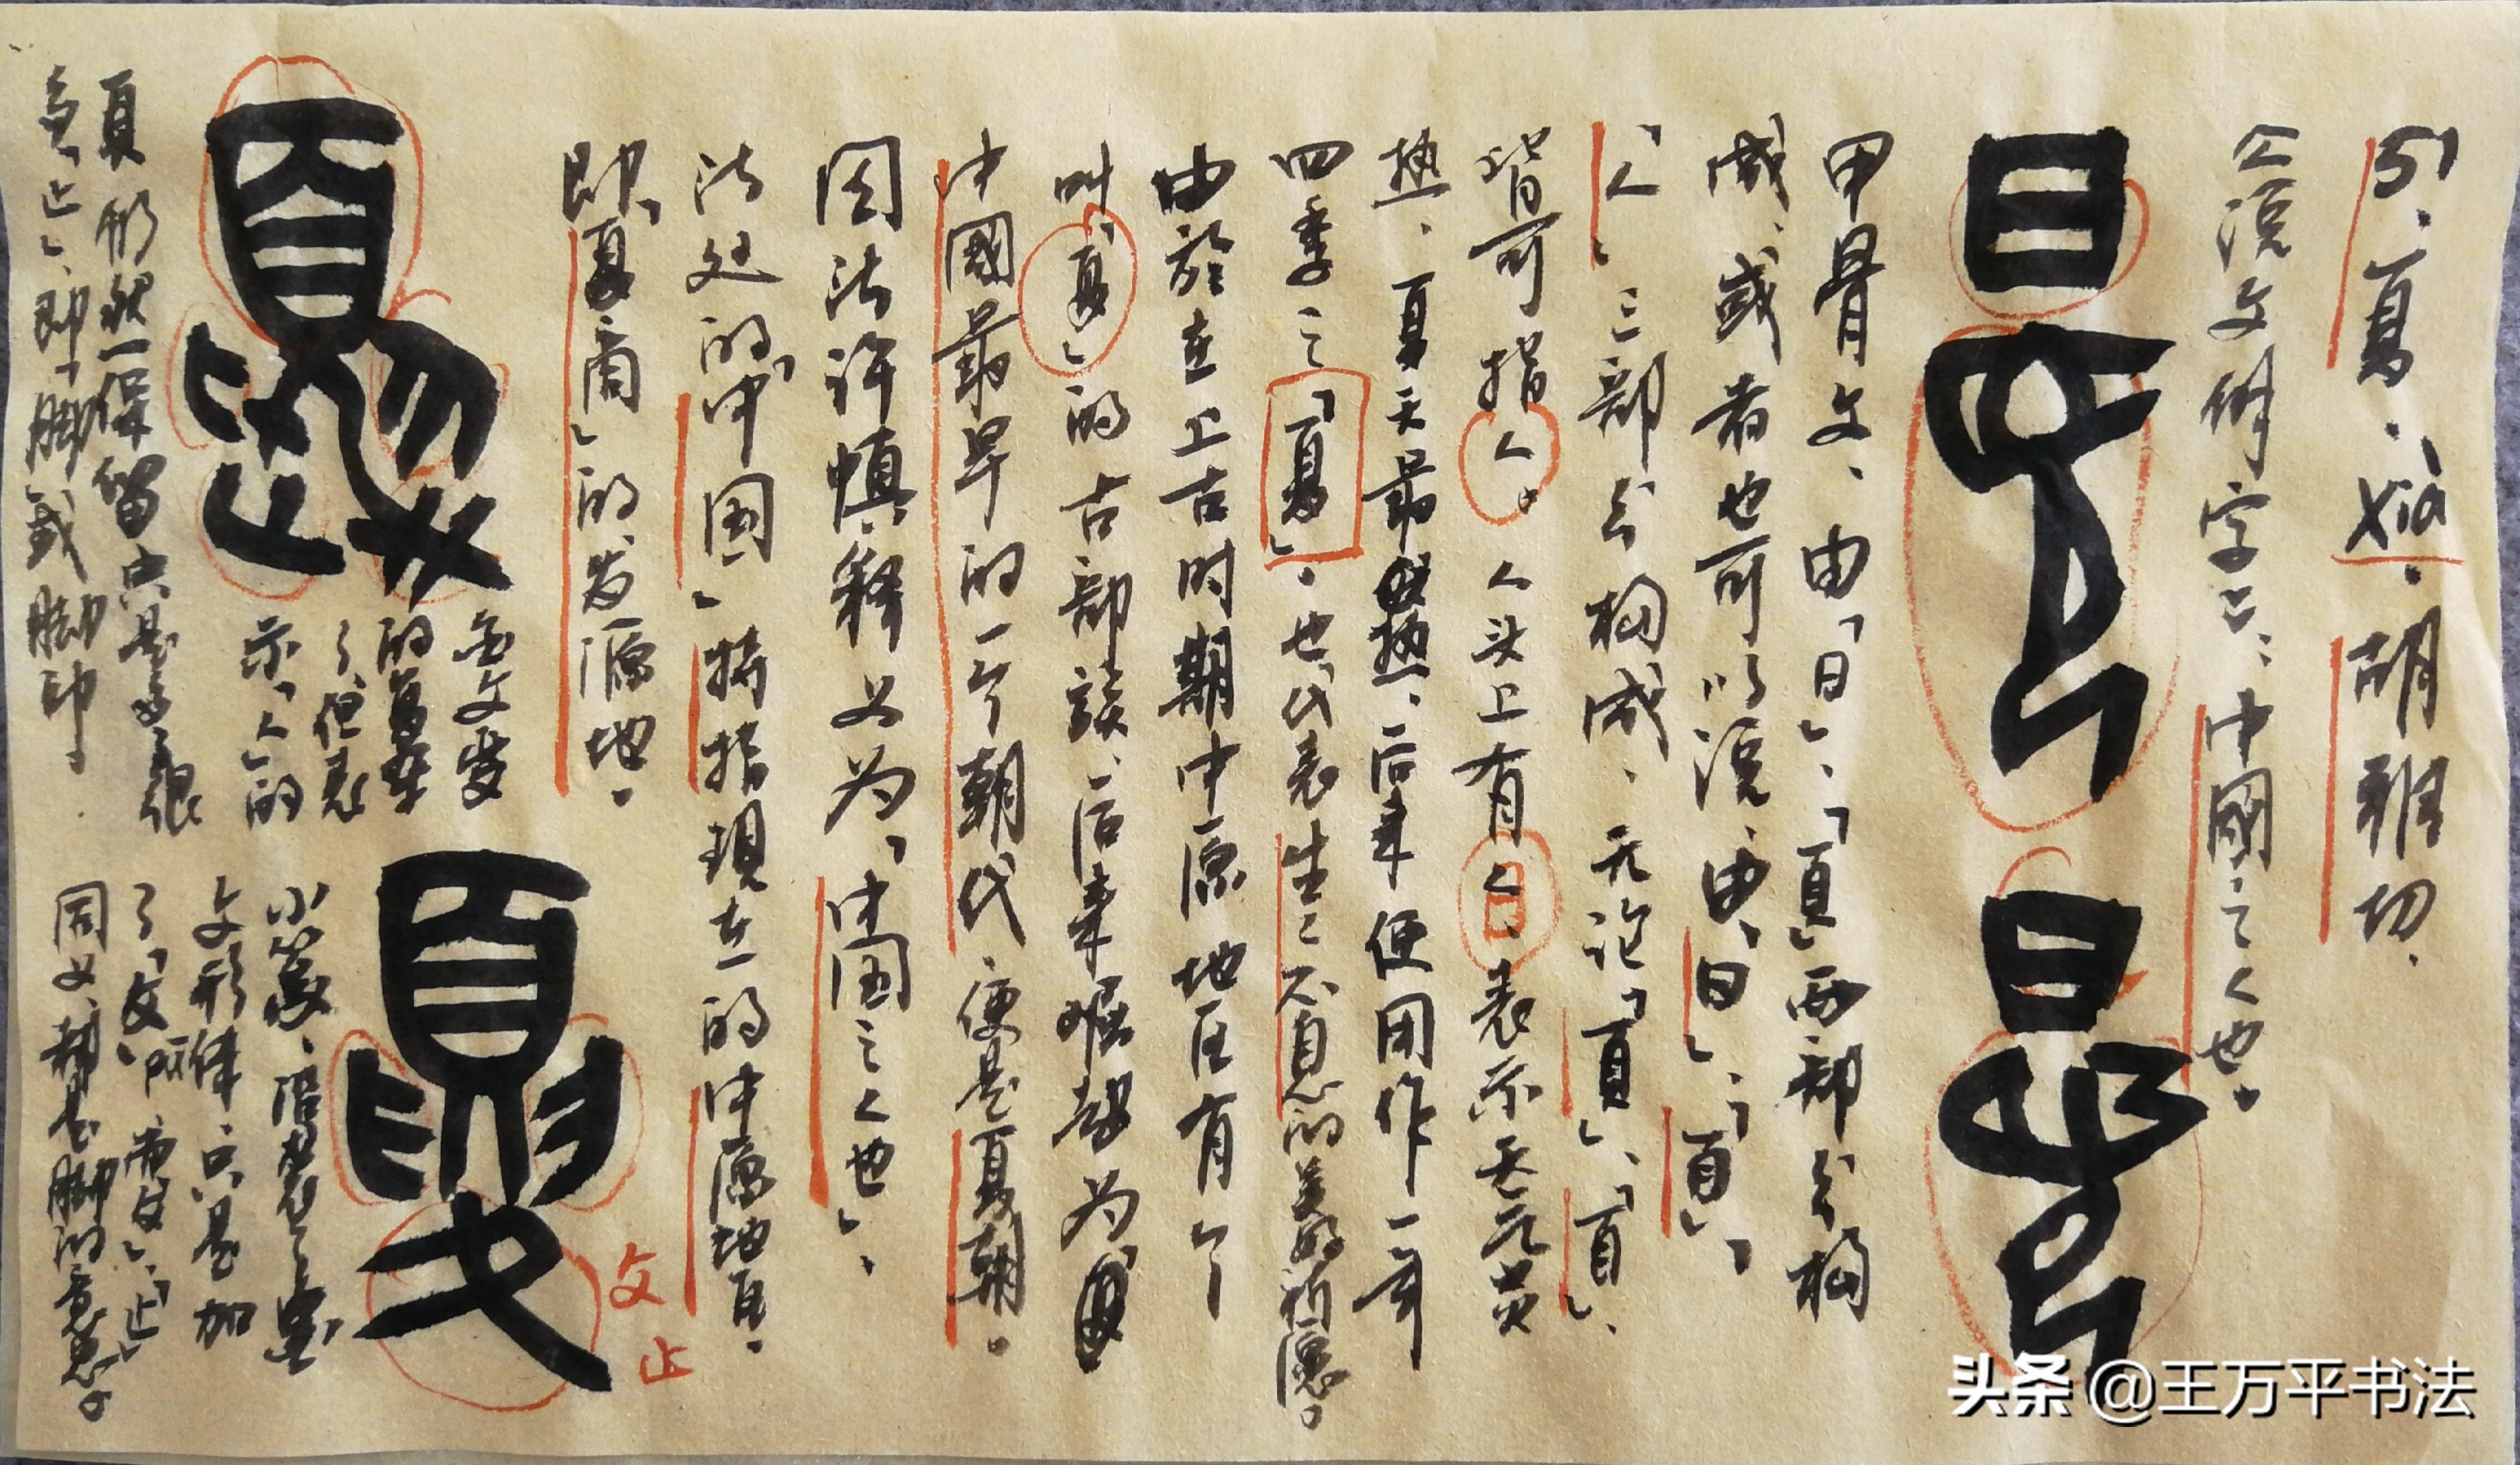 51、夏、xià、胡雅切、
《说文解字》、中國之人也。
甲骨文、由「日」、「頁」两部分構
成、或者也可以说、由「日」、「百」、
「人」三部分構成、无论「頁」、「百」、
皆可指人。人头上有日、表示天气炎
热、夏天最热、后来便用作一年
四季之「夏」。也代表生生不息的美好祈愿。
由於在上古时期中原地区有个
叫「夏」的古部族、后来崛起为
中國最早的一个朝代、便是夏朝。
因此许慎释义为、「中国之人也」、
此处的「中国」特指現在的中原地区。
即「夏商」的发源地。
金文变
的复杂
了、但表
示「人」的
頁形状一保留只是手很
「止」、即「脚」或脚印。
小篆、沿袭了金
文形体、只是加
了「夊」而「夊」、「止」
同义、都是脚的意思。
夊
止
头条 @王万平书法